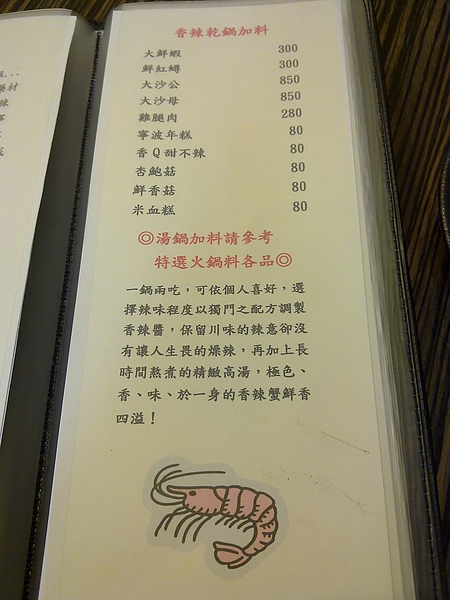 香辣乾鍋加料
大鮮蝦 300
鮮紅蟳 300
大沙公 850
大沙母 850
雞腿肉 280
寧波年糕 80
香Q甜不辣 80
杏鮑菇 80
鮮香菇 80
米血糕 80
◎湯鍋加料請參考
特選火鍋料各品◎
一鍋兩吃，可依個人喜好，選
擇辣味程度以獨門之配方調製
香辣醬，保留川味的辣意卻沒
有讓人生畏的燥辣，再加上長
時間蒸煮的精緻高湯，極色、
香、味、於一身的香辣蟹鮮香
四溢！